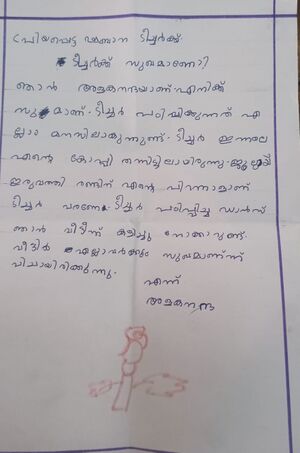 പ്രിയപ്പെട്ട ഷബാന ടീച്ചർക്ക്
ടീച്ചർക്ക് സുഖമാണോ?
ഞാൻ അളകനന്ദയാണ്. എനിക്ക്
സുഖമാണ്. ടീച്ചർ പഠിപ്പിക്കുന്നത് എ
ല്ലാം മനസിലാകുന്നുണ്ട്. ടീച്ചർ ഇന്നലെ
എന്റെ കോപ്പി തന്നിട്ടില്ലായിരുന്നു.
ഇരുപത്തി രണ്ടിന് എന്റെ പിറന്നാളാണ്
ടീച്ചർ വരണേ. ടീച്ചർ പഠിപ്പിച്ച ഡാൻസ്
ഞാൻ വീട്ടിന്ന് കളിച്ചു നോക്കാറുണ്ട്.
വീട്ടിൽ എല്ലാവർക്കും സുഖമാണ്ന്ന്
വിചാരിക്കുന്നു.
എന്ന്
അളകനന്ദ